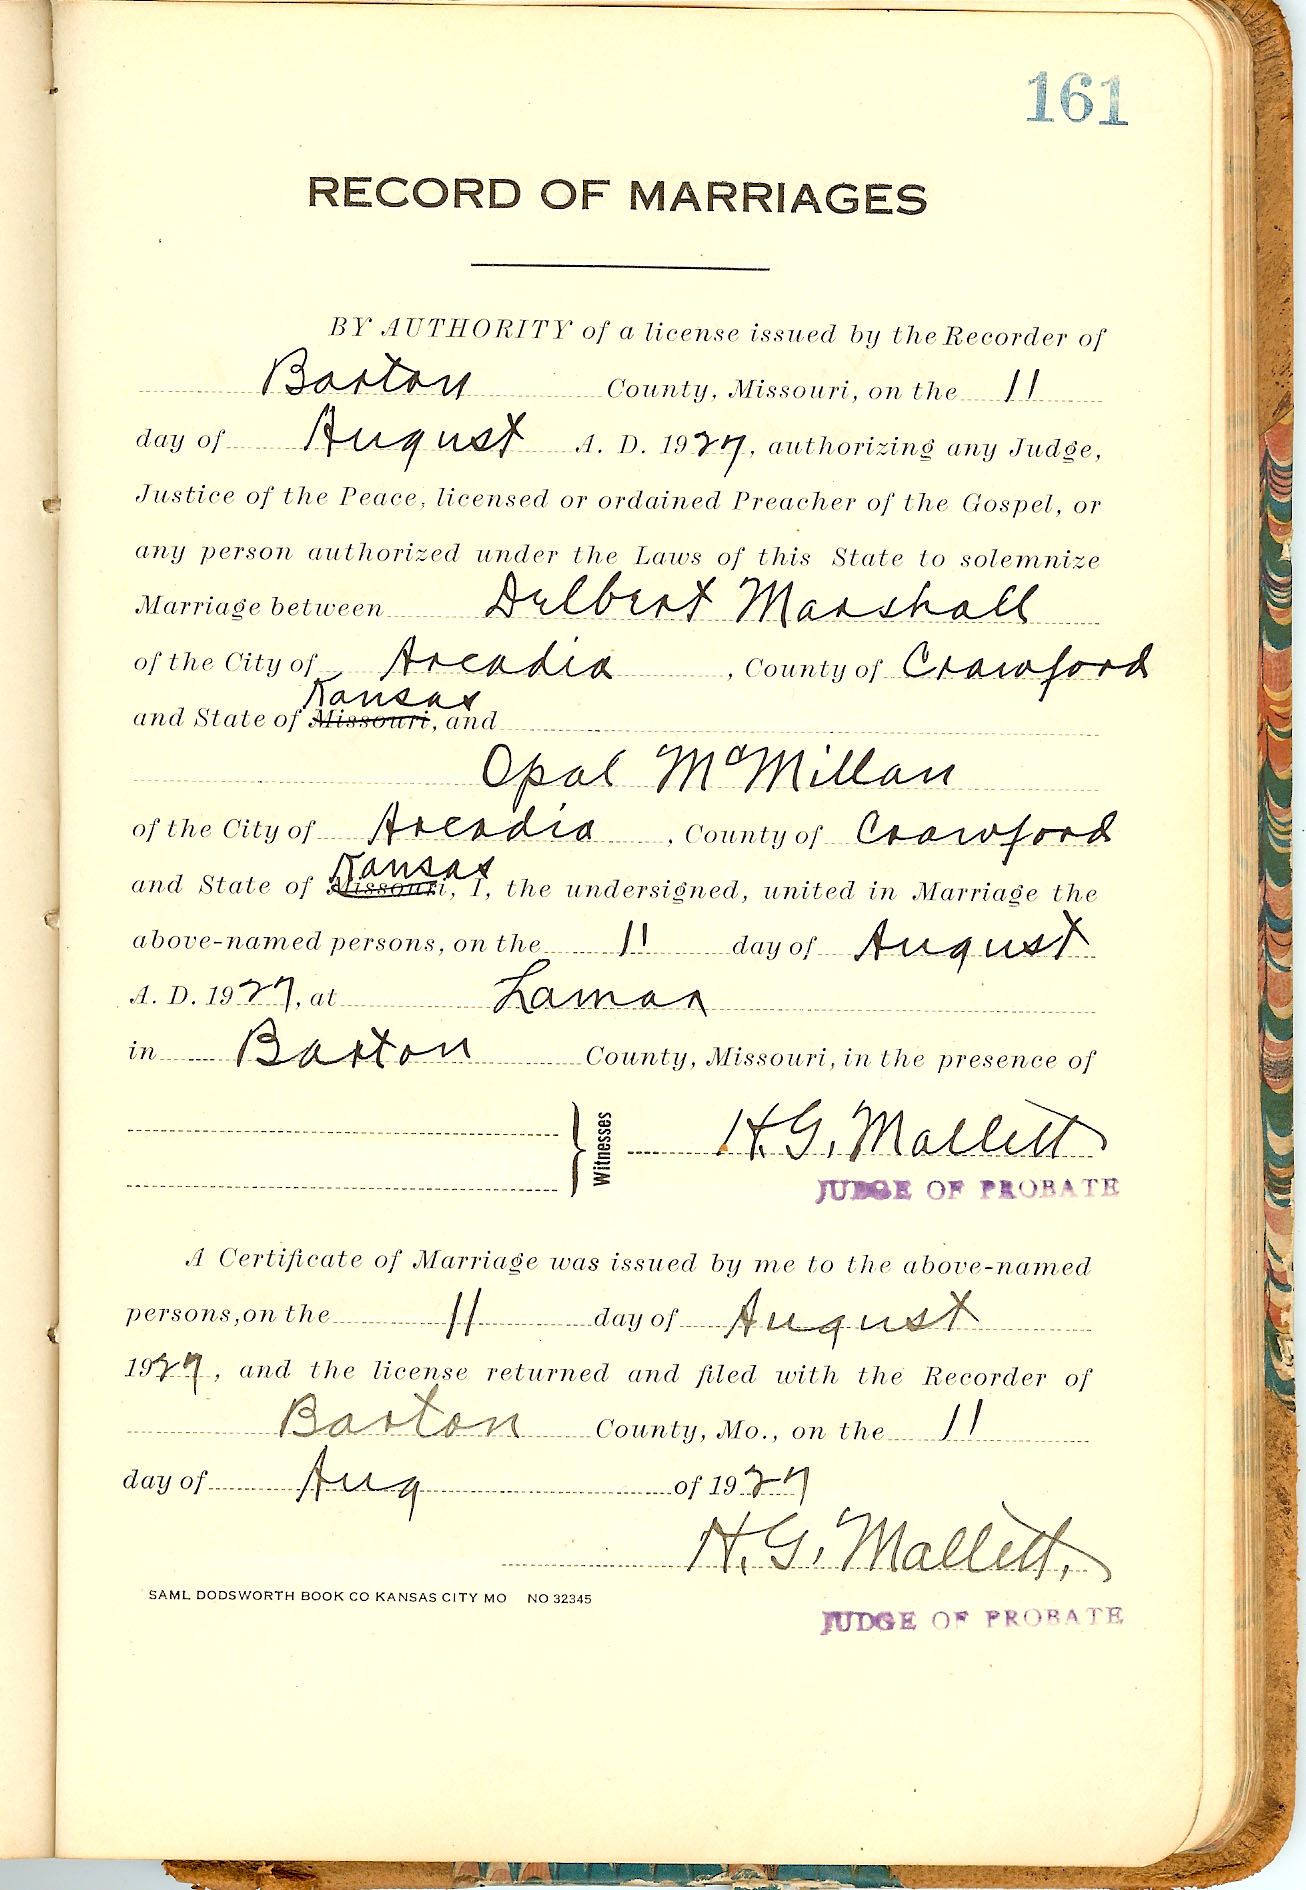 161
RECORD OF MARRIAGES
BY AUTHORITY of a license issued by the Recorder of
Barton County, Missouri, on the 11
day of August A. D. 1927, authorizing any Judge,
Justice of the Peace, licensed or ordained Preacher of the Gospel, or
any person authorized under the Laws of this State to solemnize
Marriage between Delbert Marshall
of the City of Arcadia, County of Crawford
Kansas
and State of Missouri, and
Opal McMillan
of the City of Arcadia, County of Crawford
Kansas
and State of Missouri, I, the undersigned, united in Marriage the
above-named persons, on the 11 day of August
A. D. 1927, at Lamar
in Barton County, Missouri, in the presence of
Witnesses H. G. Mallett
JUDGE OF PROBATE
A Certificate of Marriage was issued by me to the above-named
persons, on the 11 day of August
1927, and the license returned and filed with the Recorder of
Barton County, Mo., on the 11
day of Aug of 1927
H. G. Mallett.
SAML DODSWORTH BOOK CO KANSAS CITY MO NO 32345
JUDGE OF PROBATE